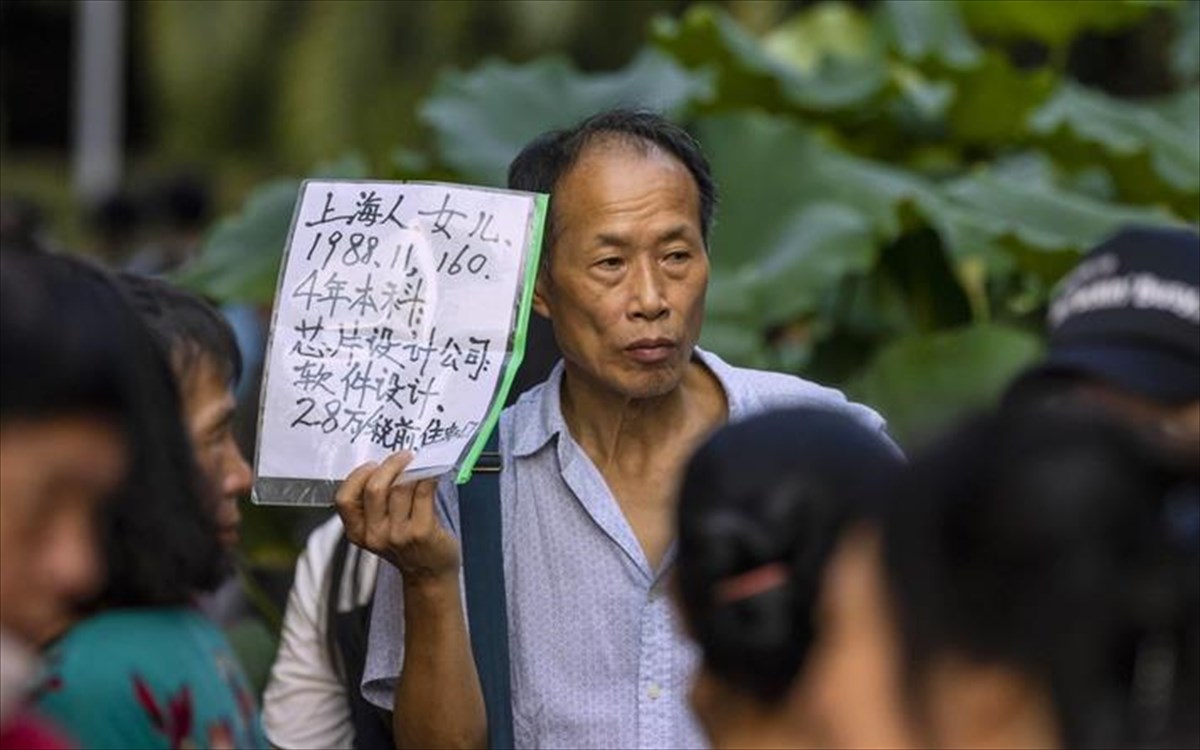 上海人 女儿.
1988.11, 160.
4年本科.
芯片设计公司.
软件设计.
28万/税前.住